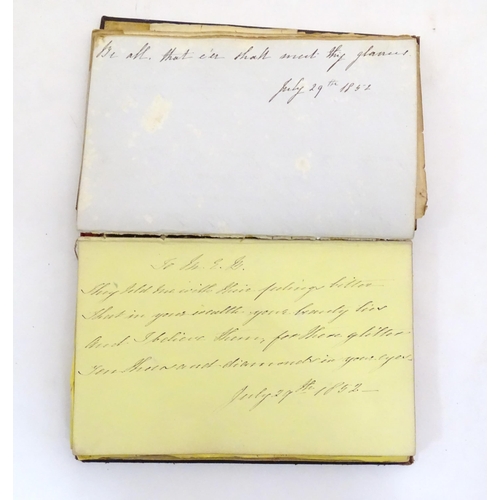 Be all, that e'er shall meet thy glances
July 29th 1852
To M. E. B.
They told me with their feelings bitter
That in your wealth your beauty lies
And I believe them, for there glitter
Ten thousand diamonds in your eyes
July 29th 1852